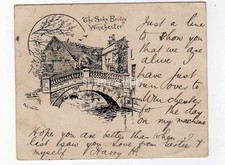 The Soke Bridge
Winchester
Just a line
to show you
that we are
alive.
I have just
run over to
Winchester
for the day
on my machine
Hope you are better than when I
last saw you. Love from Carlie &
myself Harry A.